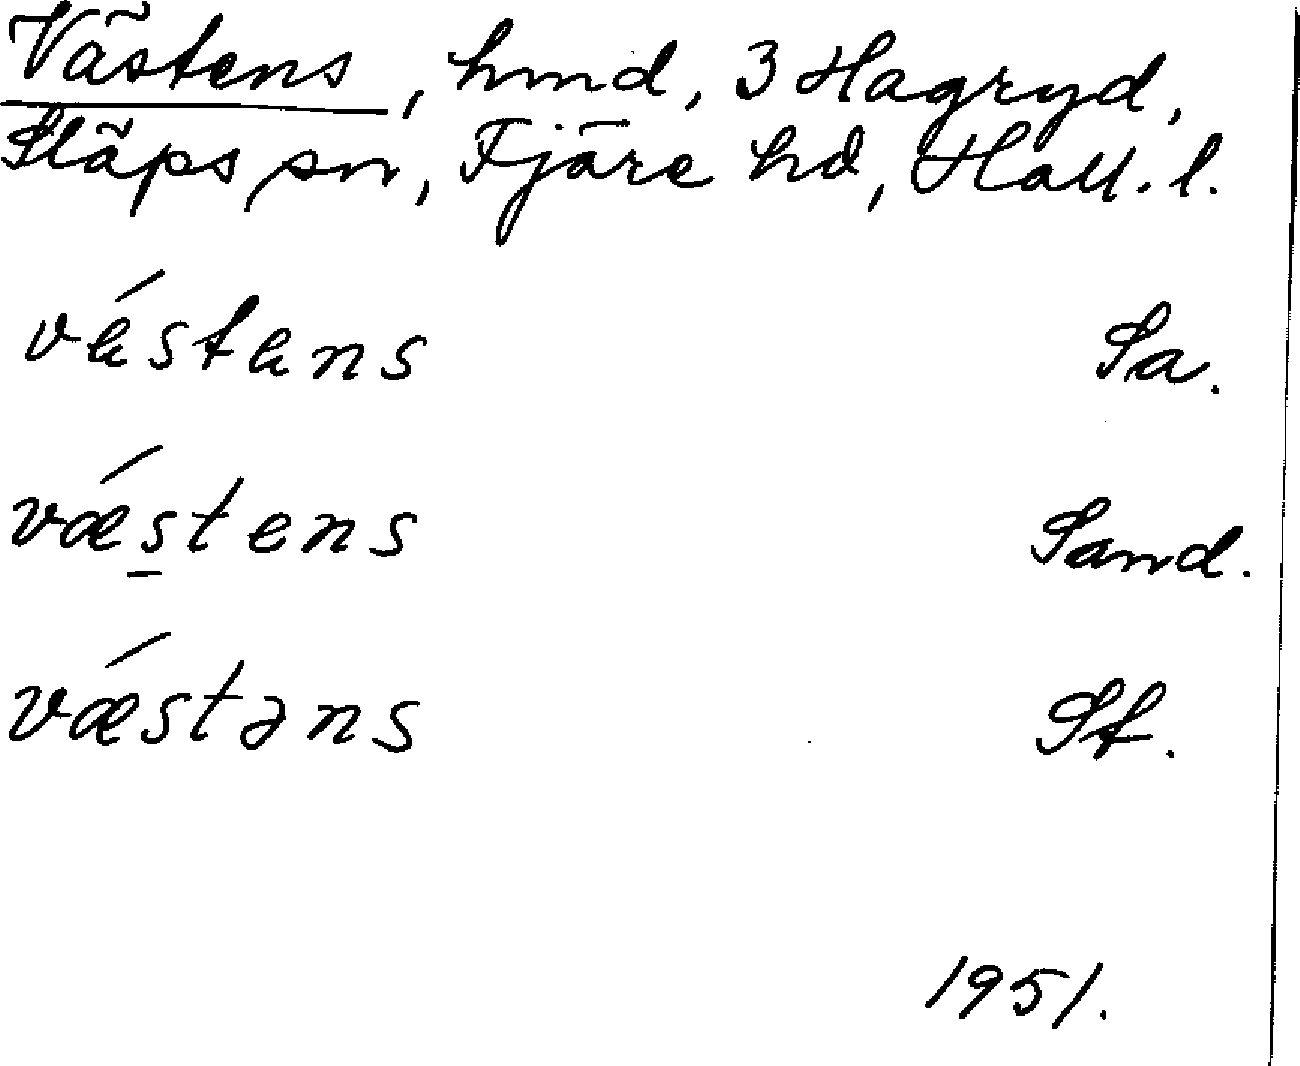 Västens, hmd, 3 Hagryd,
Släps sn, Fjäre hd, Hall. l.
vástans Sa.
vǽs̲tens Sand.
vǽstəns St.
1951.